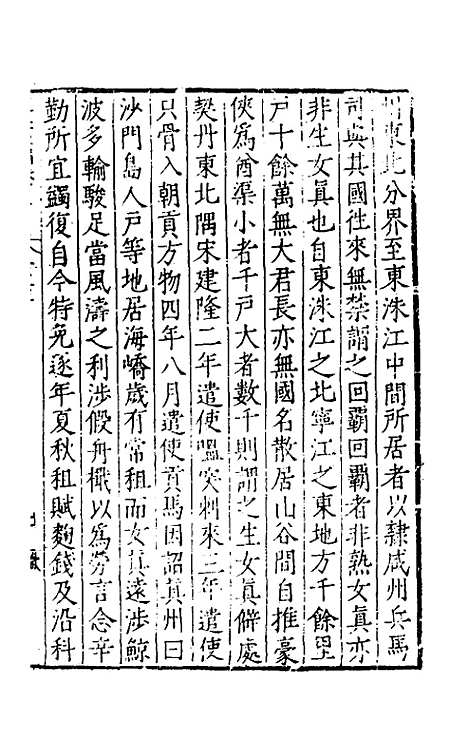 州東北分界至東洙江中間所居者以隷咸州兵馬
司與其國徃來無禁謂之回霸回霸者非熟女真亦
非生女真也自東洙江之北寧江之東地方千餘里
戸十餘萬無大君長亦無國名散居山谷間自推豪
俠爲酋渠小者千戸大者數千則謂之生女真僻處
契丹東北隅宋建隆二年遣使嗢突剌來三年遣使
只骨入朝貢方物四年八月遣使貢馬因詔真州曰
沙門島人戸等地居海嶠歲有常租而女真遠涉鯨
波多輸駿足當風濤之利涉假舟檝以爲勞言念辛
勤所宜蠲復自今特免逐年夏秋租賦麴錢及沿科